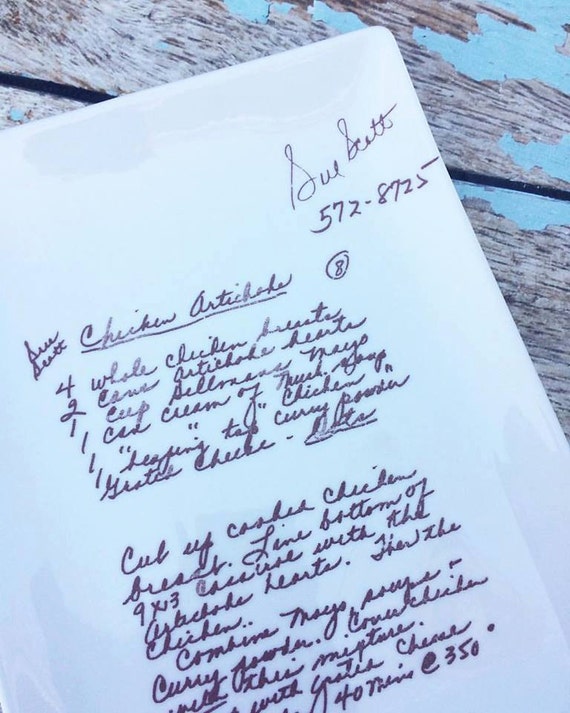 Sue Scott
572-8725
8
Sue Scott Chicken Artichoke
4 whole chicken breasts
2 cans Artichoke hearts
1 cup Hellmans Mayo
1 can cream of Mush. Soup
1 " " " Chicken "
1 "heaping tsp" curry powder
Grated Cheese - Lots
Cut up cooked chicken
breast. Line bottom of
9x13 casserole with the
Artichoke hearts. Then the
Chicken.
Combine Mayo, soups -
Curry powder. Cover chicken
with this mixture.
with grated cheese.
40 mins @ 350°